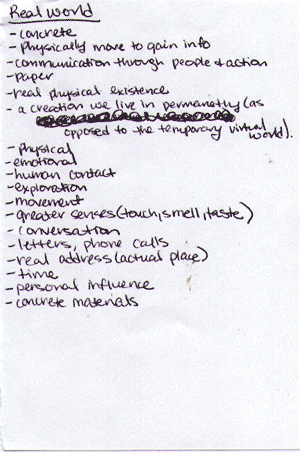 Real world
- concrete
- Physically move to gain info
- communication through people & action
- paper
- real physical existence
- a creation we live in permanetly (as
opposed to the temporary virtual
world).
- physical
- emotional
- human contact
- exploration
- movement
- greater senses (touch, smell, taste)
- conversation
- letters, phone calls
- real address (actual place)
- time
- personal influence
- concrete materials